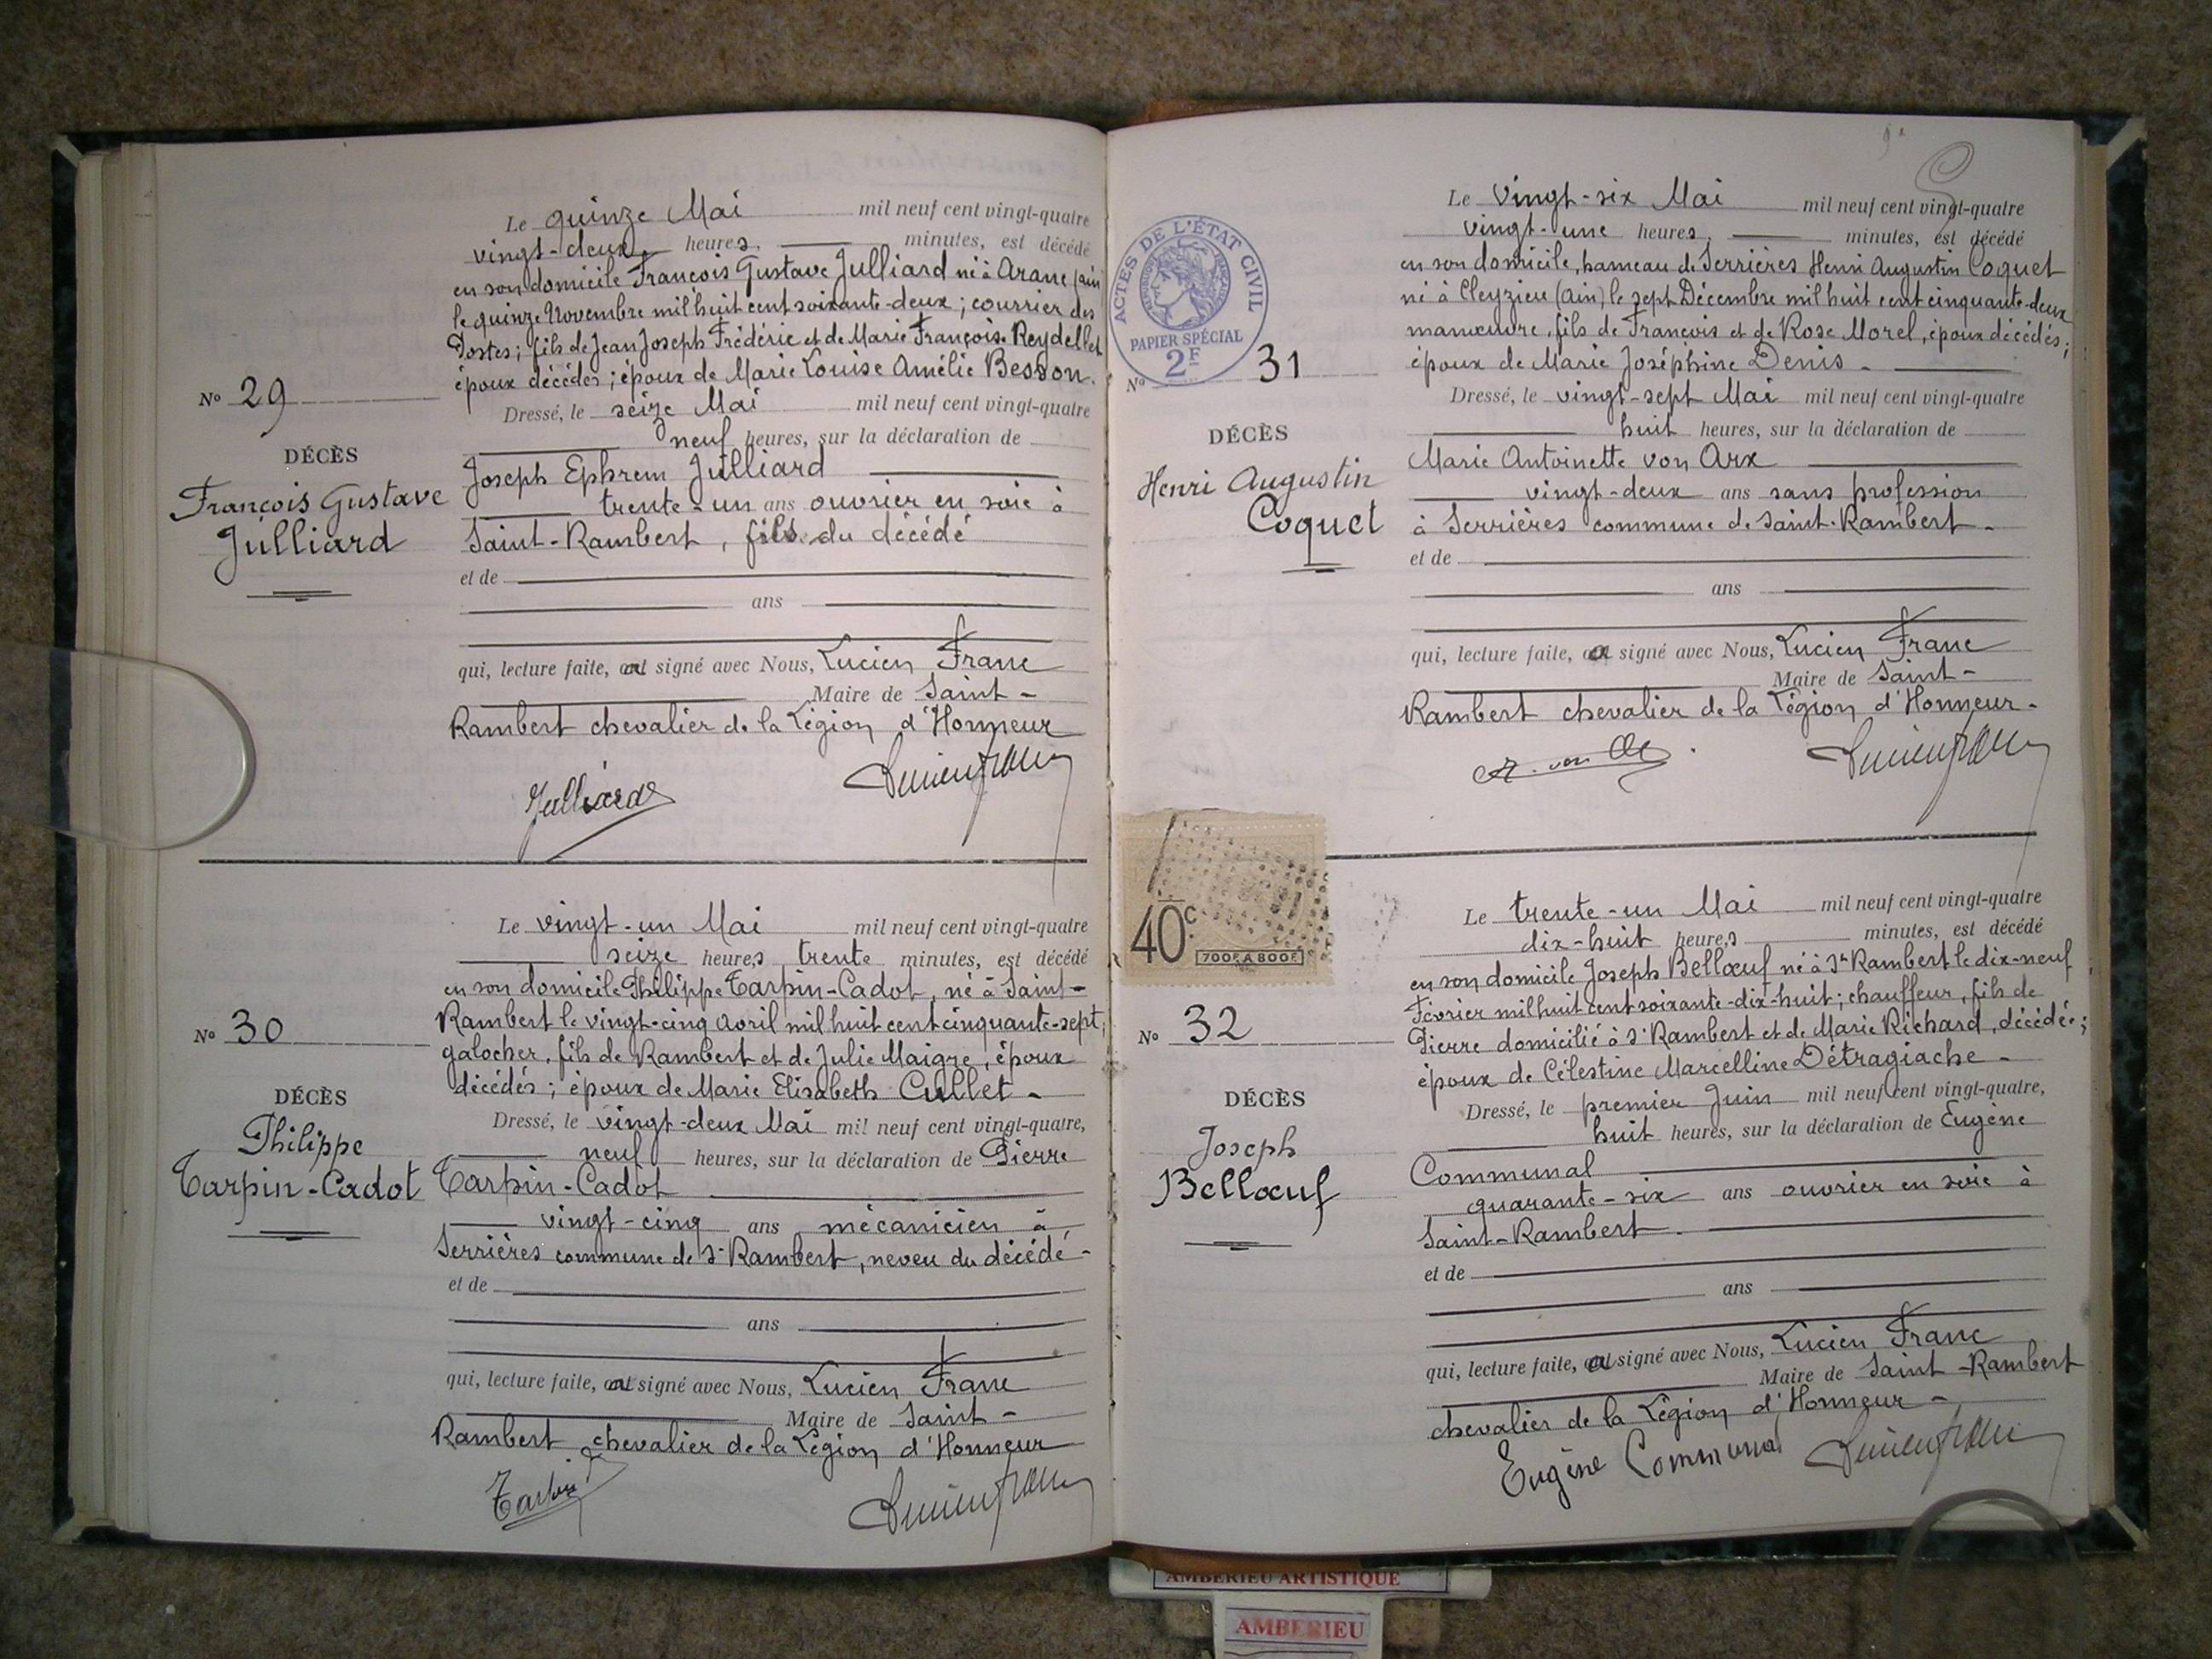 Le quinze Mai mil neuf cent vingt-quatre
vingt-deux heures, minutes, est décédé
en son domicile François Gustave Julliard né à Aranc (ain
le quinze Novembre mil huit cent soixante-deux ; courrier des
Postes ; fils de Jean Joseph Frédéric et de Marie François. Reydellet
époux décédés ; époux de Marie Louise Amélie Besson.
No 29
Dressé, le seize Mai mil neuf cent vingt-quatre
neuf heures, sur la déclaration de
DÉCÈS
François Gustave
Julliard
Joseph Ephrem Julliard
trente-un ans ouvrier en soie à
Saint-Rambert, fils du décédé
et de
ans
qui, lecture faite, a signé avec Nous, Lucien Franc
Maire de Saint-
Rambert chevalier de la Légion d'Honneur
Julliard
Le vingt-un Mai mil neuf cent vingt-quatre
seize heures trente minutes, est décédé
en son domicile Philippe Tarpin-Cadot, né à Saint-
Rambert le vingt-cinq avril mil huit cent cinquante-sept ;
galocher, fils de Rambert et de Julie Maigre, époux
décédés ; époux de Marie Elisabeth Cullet -
No 30
DÉCÈS
Philippe
Tarpin-Cadot
Dressé, le vingt-deux Mai mil neuf cent vingt-quatre,
neuf heures, sur la déclaration de Pierre
Tarpin-Cadot
vingt-cinq ans mécanicien à
Serrières commune de St Rambert, neveu du décédé -
et de
ans
qui, lecture faite, a signé avec Nous, Lucien Franc
Maire de Saint-
Rambert chevalier de la Légion d'Honneur
Tarpin
ACTES DE L'ÉTAT CIVIL
RÉPUBLIQUE FRANÇAISE
PAPIER SPÉCIAL
2F
No 31
DÉCÈS
Henri Augustin
Coquet
Le vingt-six Mai mil neuf cent vingt-quatre
vingt-une heures, minutes, est décédé
en son domicile, hameau de Serrières Henri Augustin Coquet
né à Cleyzieu (Ain) le sept Décembre mil huit cent cinquante-deux
manœuvre, fils de François et de Rose Morel, époux décédés ;
époux de Marie Joséphine Denis -
Dressé, le vingt-sept Mai mil neuf cent vingt-quatre
huit heures, sur la déclaration de
Marie Antoinette von Arx
vingt-deux ans sans profession
à Serrières commune de Saint-Rambert -
et de
ans
qui, lecture faite, a signé avec Nous, Lucien Franc
Maire de Saint-
Rambert chevalier de la Légion d'Honneur -
40c
700F A 800F
No 32
DÉCÈS
Joseph
Bellœuf
Le trente-un Mai mil neuf cent vingt-quatre
dix-huit heures minutes, est décédé
en son domicile Joseph Bellœuf né à St Rambert le dix-neuf
Février mil huit cent soixante-dix-huit ; chauffeur, fils de
Pierre domicilié à St Rambert et de Marie Richard, décédée ;
époux de Célestine Marcelline Détragiache -
Dressé, le premier Juin mil neuf cent vingt-quatre,
huit heures, sur la déclaration de Eugène
Communal
quarante-six ans ouvrier en soie à
Saint-Rambert.
et de
ans
qui, lecture faite, a signé avec Nous, Lucien Franc
Maire de Saint-Rambert
chevalier de la Légion d'Honneur -
Eugène Communal
AMBERIEU ARTISTIQUE
AMBERIEU